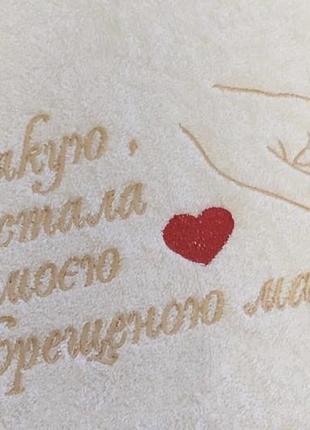 акую,
стала
моєю
брещеною ма